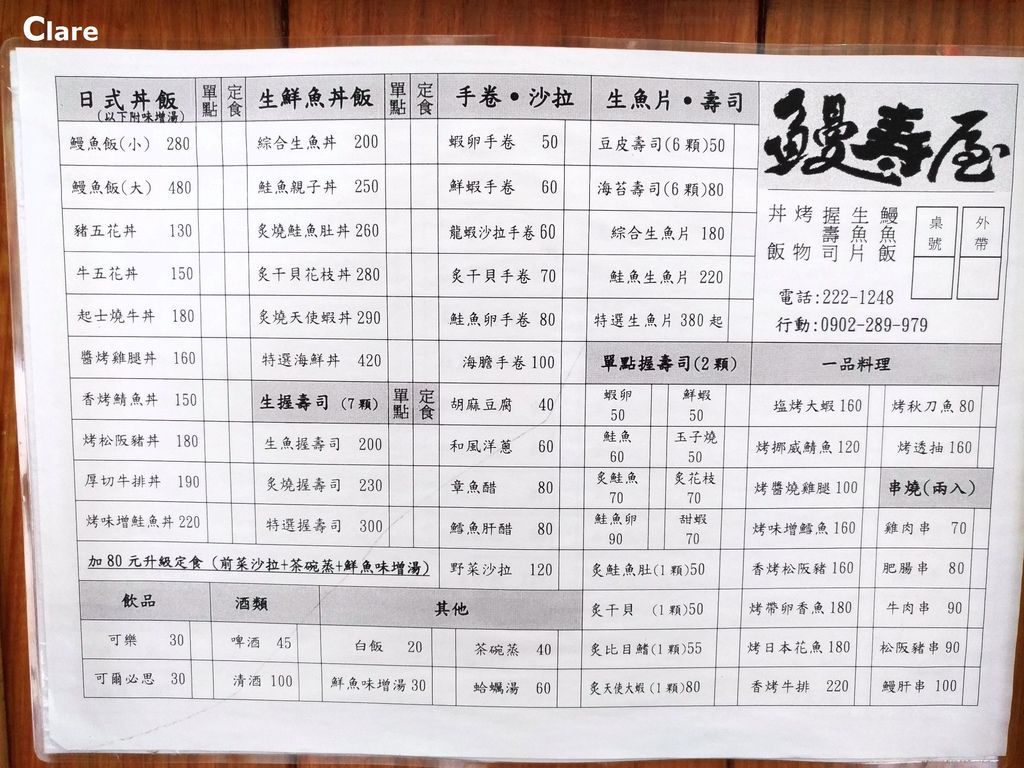 Clare
日式丼飯 單點 定食
(以下附味增湯)
鰻魚飯(小) 280
鰻魚飯(大) 480
豬五花丼 130
牛五花丼 150
起士燒牛丼 180
醬烤雞腿丼 160
香烤鯖魚丼 150
烤松阪豬丼 180
厚切牛排丼 190
烤味增鮭魚丼 220
生鮮魚丼飯 單點 定食
綜合生魚丼 200
鮭魚親子丼 250
炙燒鮭魚肚丼 260
炙干貝花枝丼 280
炙燒天使蝦丼 290
特選海鮮丼 420
生握壽司 (7顆) 單點 定食
生魚握壽司 200
炙燒握壽司 230
特選握壽司 300
加80元升級定食(前菜沙拉+茶碗蒸+鮮魚味增湯)
手卷•沙拉
蝦卵手卷 50
鮮蝦手卷 60
龍蝦沙拉手卷 60
炙干貝手卷 70
鮭魚卵手卷 80
海膽手卷 100
胡麻豆腐 40
和風洋蔥 60
章魚醋 80
鱈魚肝醋 80
野菜沙拉 120
生魚片•壽司
豆皮壽司(6顆)50
海苔壽司(6顆)80
綜合生魚片 180
鮭魚生魚片 220
特選生魚片 380起
單點握壽司(2顆)
蝦卵 50
鮮蝦 50
鮭魚 60
玉子燒 50
炙鮭魚 70
炙花枝 70
鮭魚卵 90
甜蝦 70
炙鮭魚肚(1顆)50
炙干貝 (1顆)50
炙比目鰭(1顆)55
炙天使大蝦(1顆)80
鰻壽屋
鰻魚飯
生魚片
握壽司
烤物
丼飯
桌號
外帶
電話:222-1248
行動:0902-289-979
一品料理
塩烤大蝦 160
烤挪威鯖魚 120
烤醬燒雞腿 100
烤味增鱈魚 160
香烤松阪豬 160
烤帶卵香魚 180
烤日本花魚 180
香烤牛排 220
烤秋刀魚 80
烤透抽 160
串燒(兩入)
雞肉串 70
肥腸串 80
牛肉串 90
松阪豬串 90
鰻肝串 100
飲品
可樂 30
可爾必思 30
酒類
啤酒 45
清酒 100
其他
白飯 20
鮮魚味增湯 30
茶碗蒸 40
蛤蠣湯 60